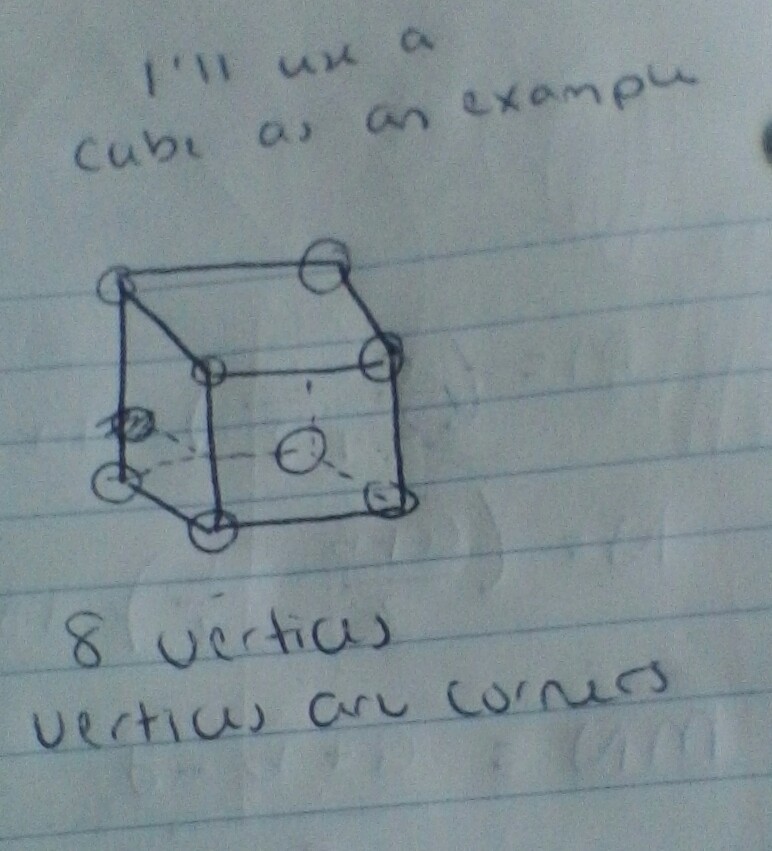 I'll use a
cube as an example
8 vertices
vertices are corners